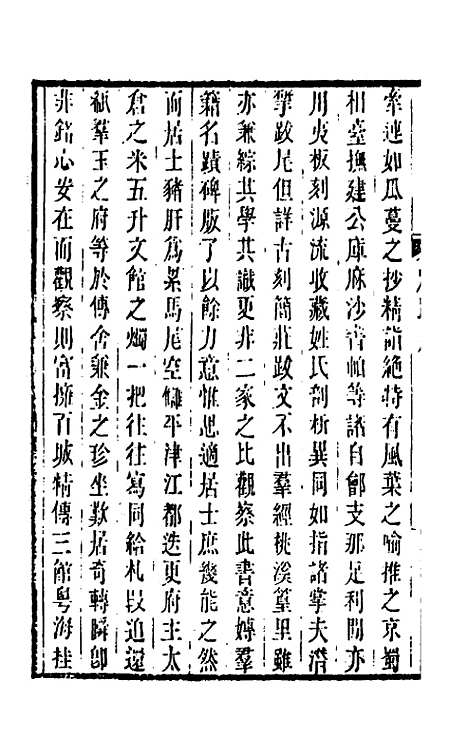 牽連如瓜蔓之抄精詣絶特有風葉之喻推之京蜀
相臺撫建公庫麻沙書帕等諸自鄶支那足利間亦
川夾板刻源流收藏姓氏剖析異同如指諸掌夫潛
揅跋尾但詳古刻簡莊跋文不出羣經桃溪篁里雖
亦兼綜其學其識更非二家之比觀察此書意媂羣
籍名蹟碑版了以餘力意惟思適居士庶幾能之然
而居士豬肝爲累馬尾空讎平津江都迭更府主太
倉之米五升文館之燭一把往往寫同給札跂追還
瓻羣玉之府等於傳舍兼金之珍坐歎居奇轉瞬卽
非銘心安在而觀察則富擁百城精傳三館粤海挂